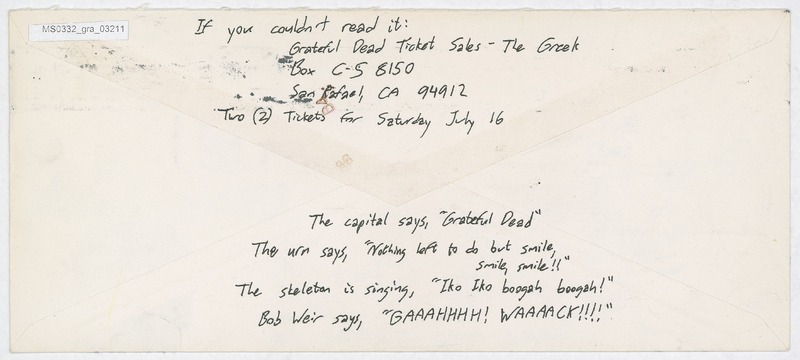 MS0332_gra_03211
If you couldn't read it:
Grateful Dead Ticket Sales - The Greek
Box C-S 8150
San Rafael, CA 94912
Two (2) Tickets for Saturday July 16
The capital says, "Grateful Dead"
The urn says, "Nothing left to do but smile,
smile, smile!!"
The skeleton is singing, "Iko Iko boogah boogah!"
Bob Weir says, "GAAAHHHH! WAAAACK!!!!"